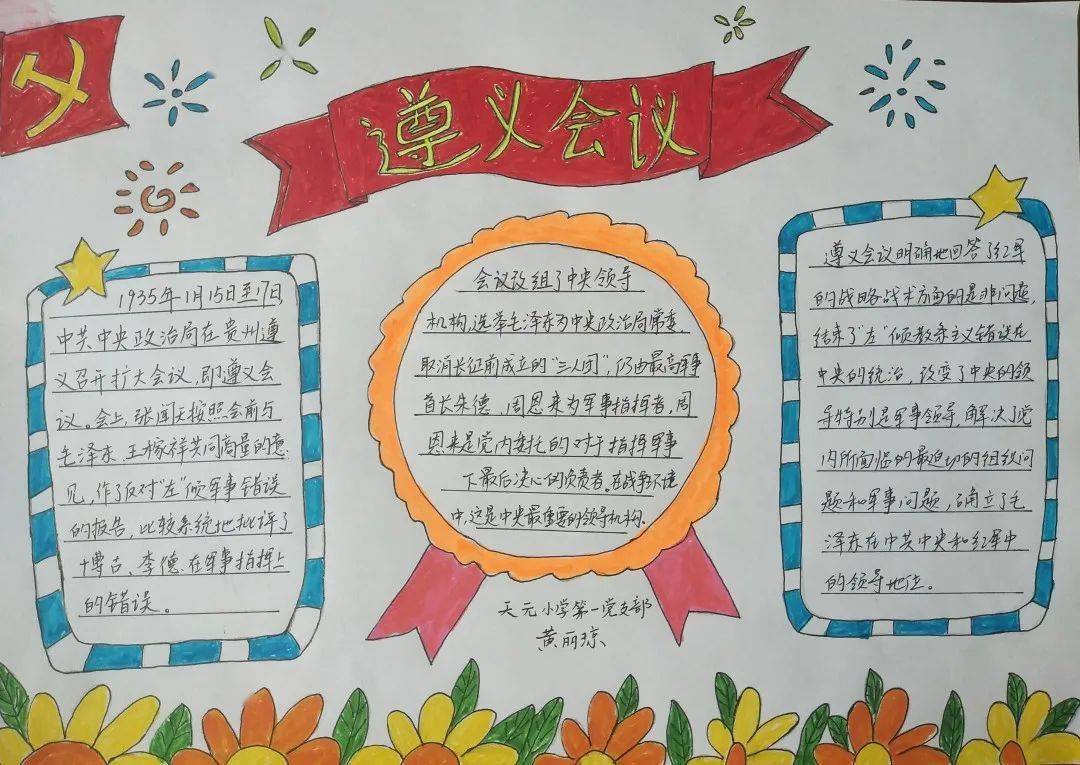 遵义会议
1935年1月15日至17日,
中共中央政治局在贵州遵
义召开扩大会议,即遵义会
议。会上,张闻天按照会前与
毛泽东、王稼祥共同商量的意
见,作了反对“左”倾军事错误
的报告,比较系统地批评了
博古、李德在军事指挥上
的错误。
会议改组了中央领导
机构,选举毛泽东为中央政治局常委
取消长征前成立的“三人团”,仍由最高军事
首长朱德、周恩来为军事指挥者,周
恩来是党内委托的对于指挥军事
下最后决心的负责者。在战争环境
中,这是中央最重要的领导机构。
天元小学第一党支部
黄丽琼
遵义会议明确地回答了红军
的战略战术方面的是非问题,
结束了“左”倾教条主义错误在
中央的统治,改变了中央的领
导特别是军事领导,解决了党
内所面临的最迫切的组织问
题和军事问题,确立了毛
泽东在中共中央和红军中
的领导地位。